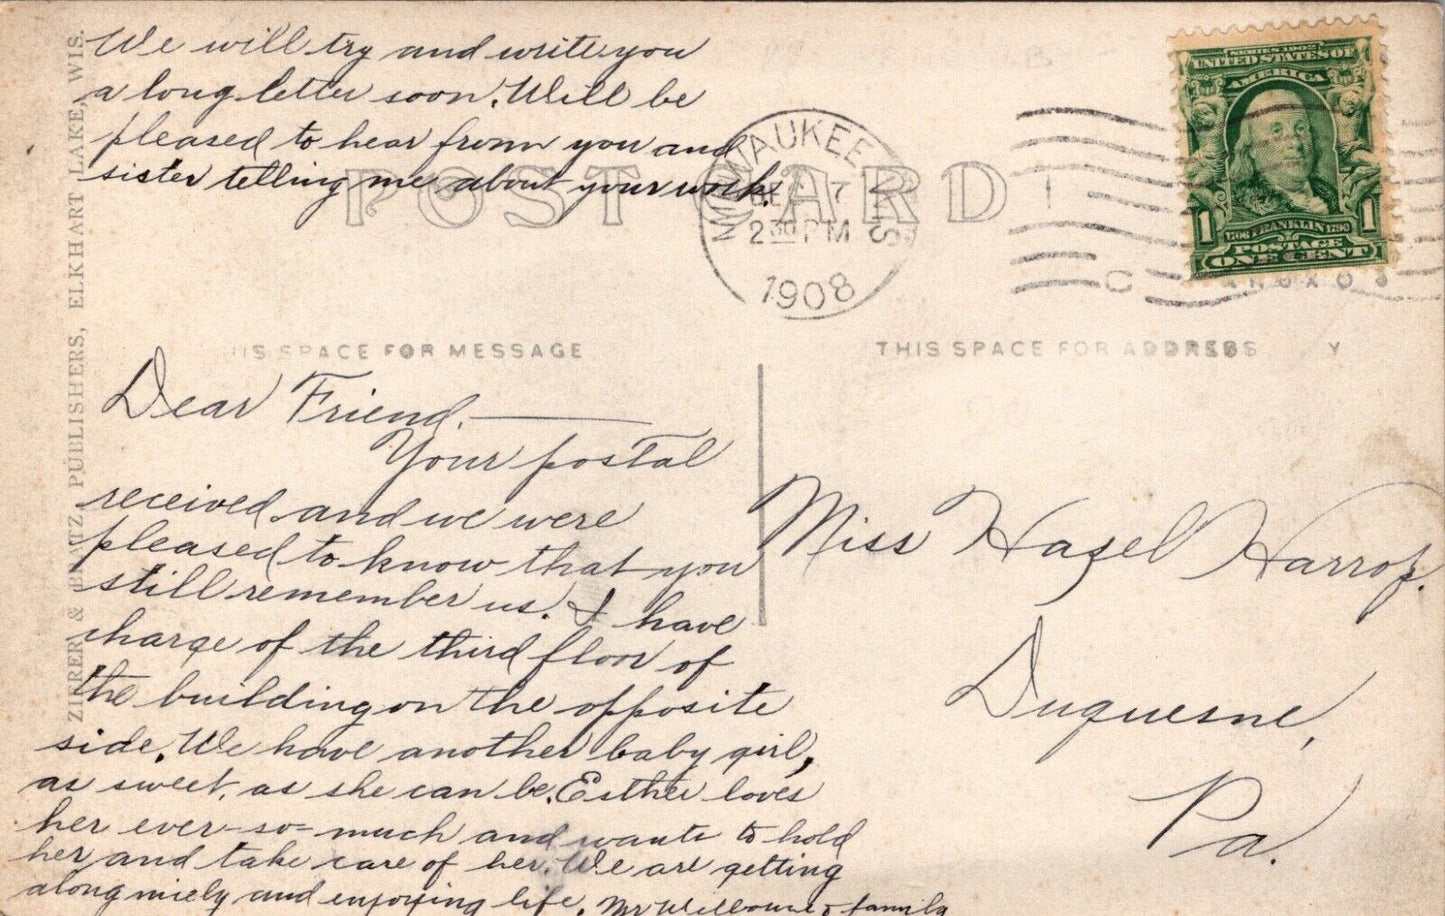 We will try and write you
a long letter soon. Will be
pleased to hear from you and
sister telling me about your work.
POST CARD
MILWAUKEE WIS
7
2 30 PM
1908
SERIES 1902
UNITED STATES OF
AMERICA
1 1
1706 FRANKLIN 1790
POSTAGE
ONE CENT
ZIERER & BLATZ, PUBLISHERS, ELKHART LAKE, WIS.
THIS SPACE FOR MESSAGE
THIS SPACE FOR ADDRESS
Dear Friend.
Your postal
received and we were
pleased to know that you
still remember us. I have
charge of the third floor of
the building on the opposite
side. We have another baby girl,
as sweet, as she can be. Esther loves
her ever-so-much and wants to hold
her and take care of her. We are getting
along nicely and enjoying life. Mr & family
Miss Hazel Harrop.
Duquesne,
Pa.